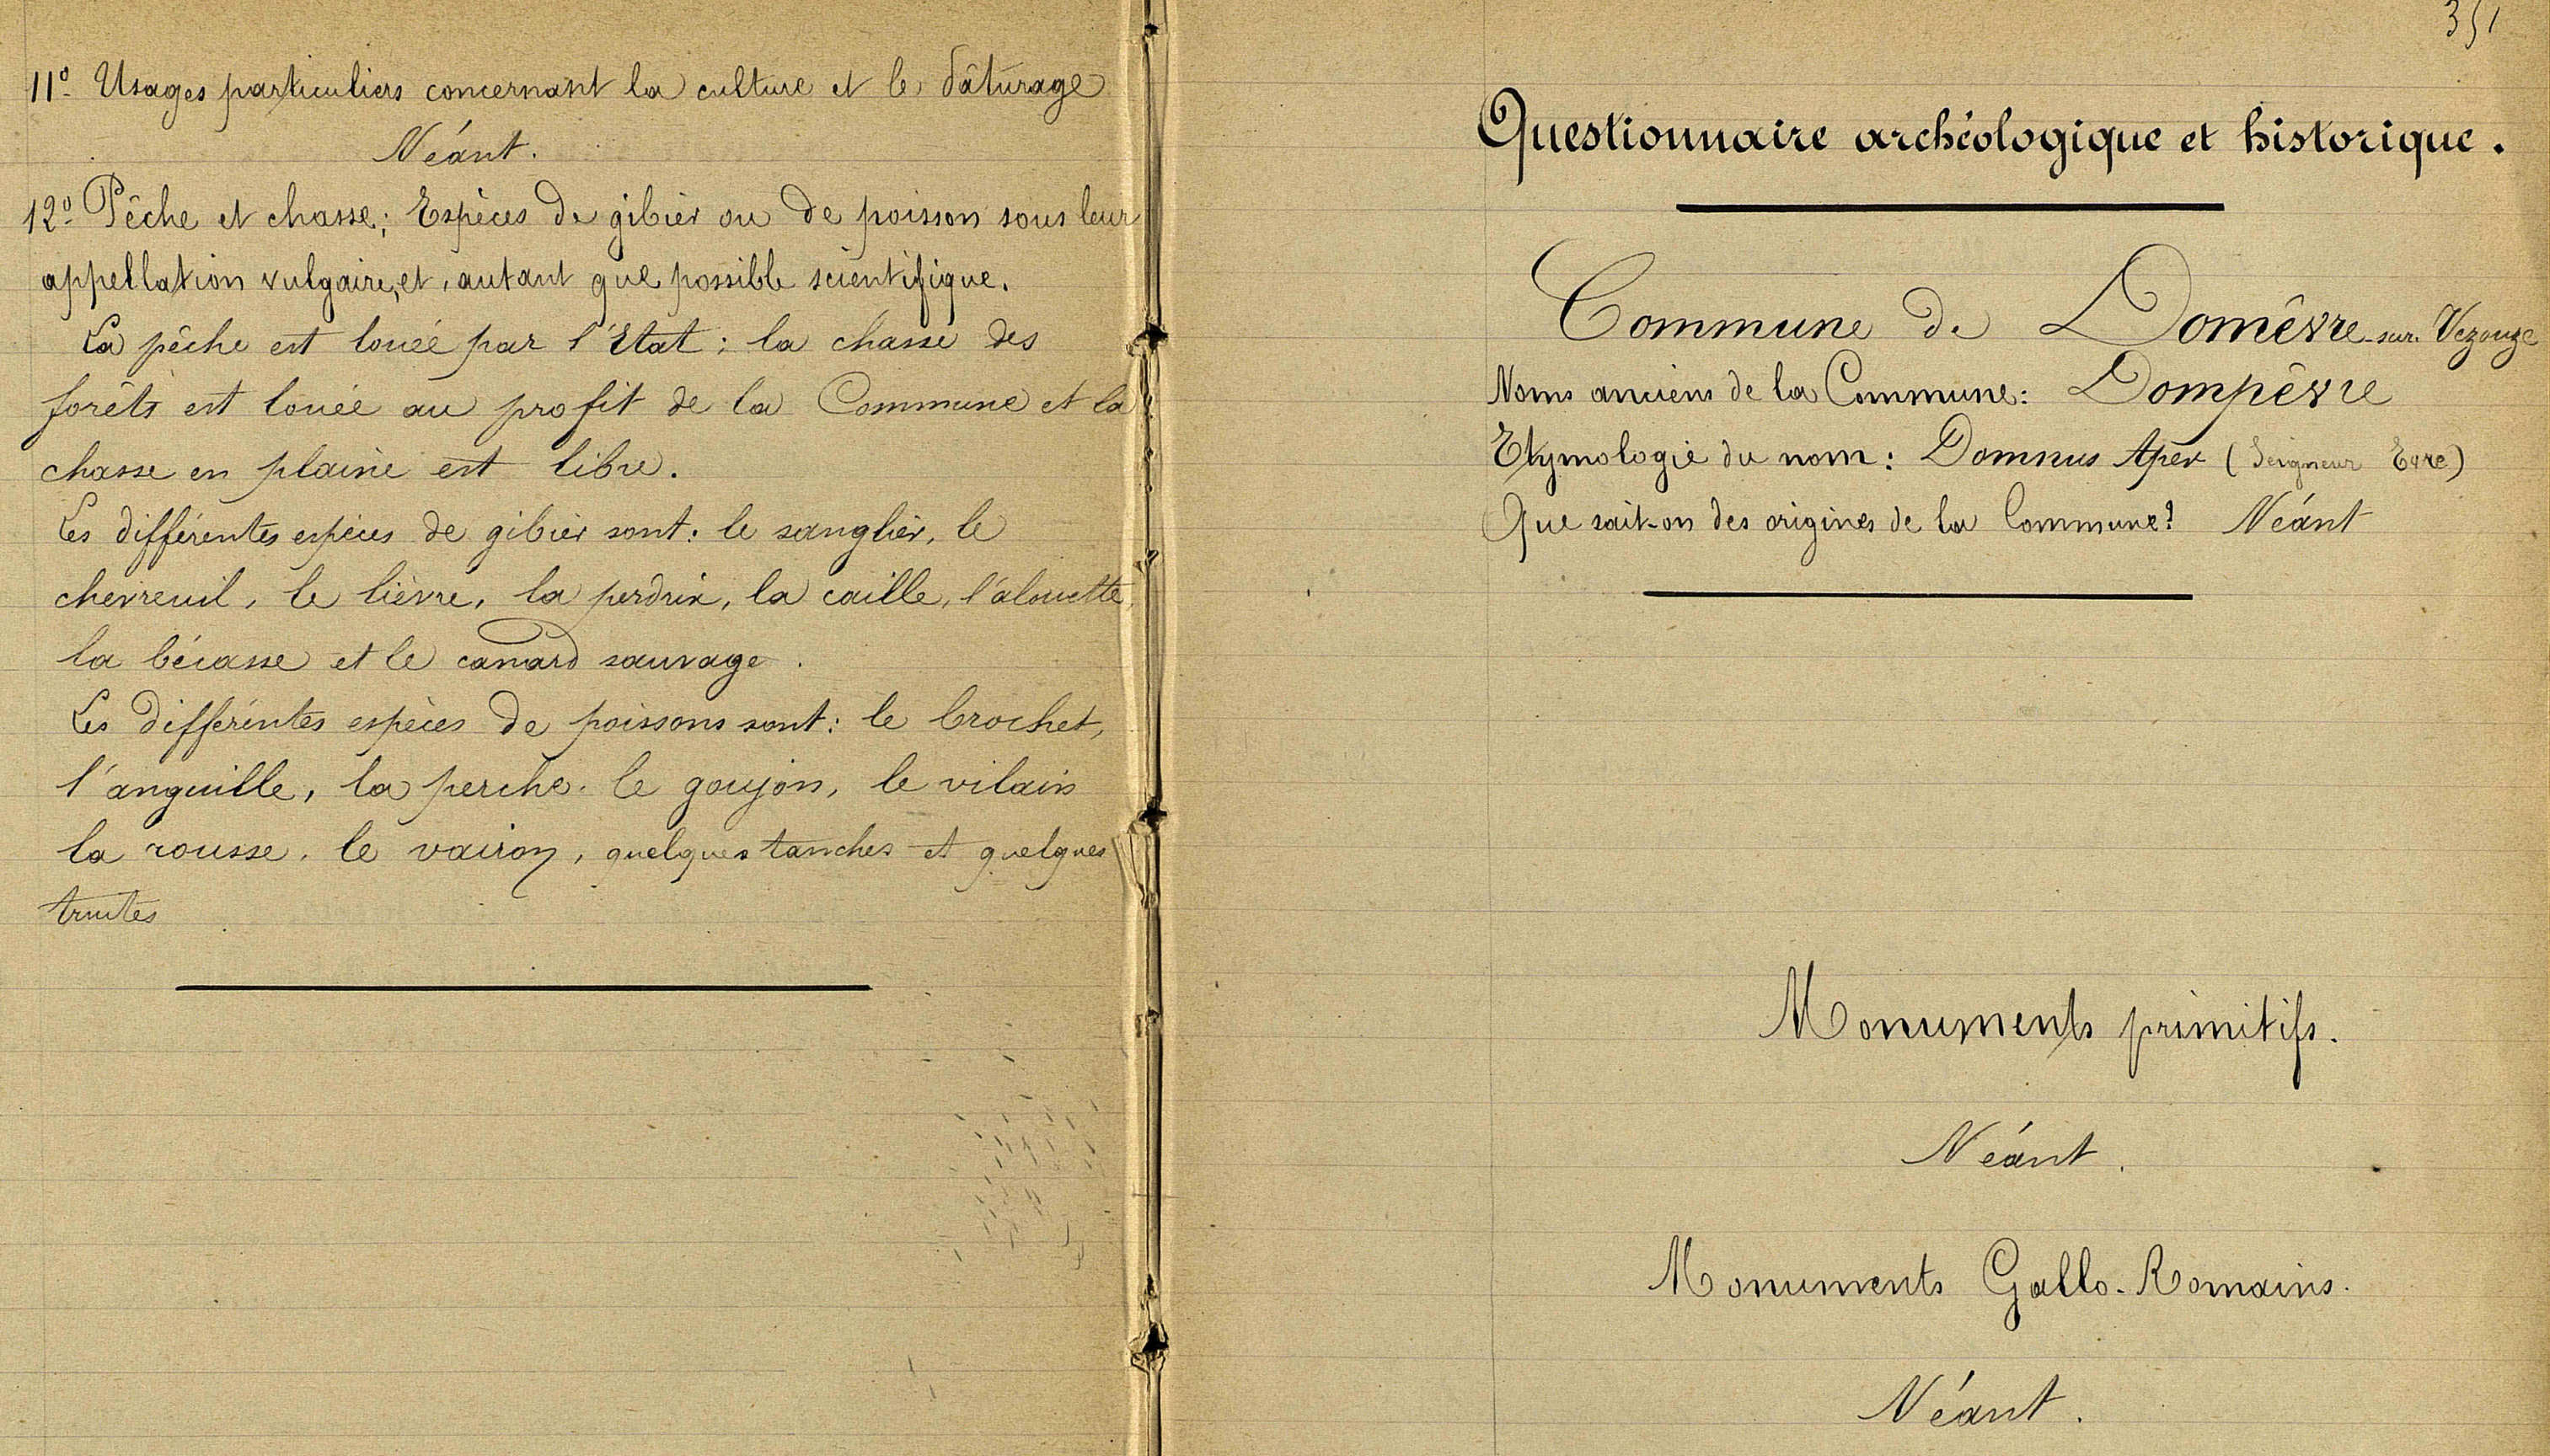 11º- Usages particuliers concernant la culture et le Pâturage
Néant.
12º- Pêche et chasse; Espèces de gibier ou de poisson sous leur
appellation vulgaire, et, autant que possible scientifique.
La pêche est louée par l'Etat : la chasse des
forêts est louée au profit de la Commune et la
chasse en plaine est libre.
Les différentes espèces de gibier sont : le sanglier, le
chevreuil, le lièvre, la perdrix, la caille, l'alouette,
la bécasse et le canard sauvage.
Les différentes espèces de poissons sont : le brochet,
l'anguille, la perche, le goujon, le vilain
la rousse, le vairon, quelques tanches et quelques
truites
351
Questionnaire archéologique et historique.
Commune de Domêvre-sur-Vezouze
Noms anciens de la Commune: Dompêvre
Etymologie du nom : Domnus Aper (Seigneur Evre)
Que sait-on des origines de la Commune? Néant
Monuments primitifs.
Néant.
Monuments Gallo-Romains.
Néant.